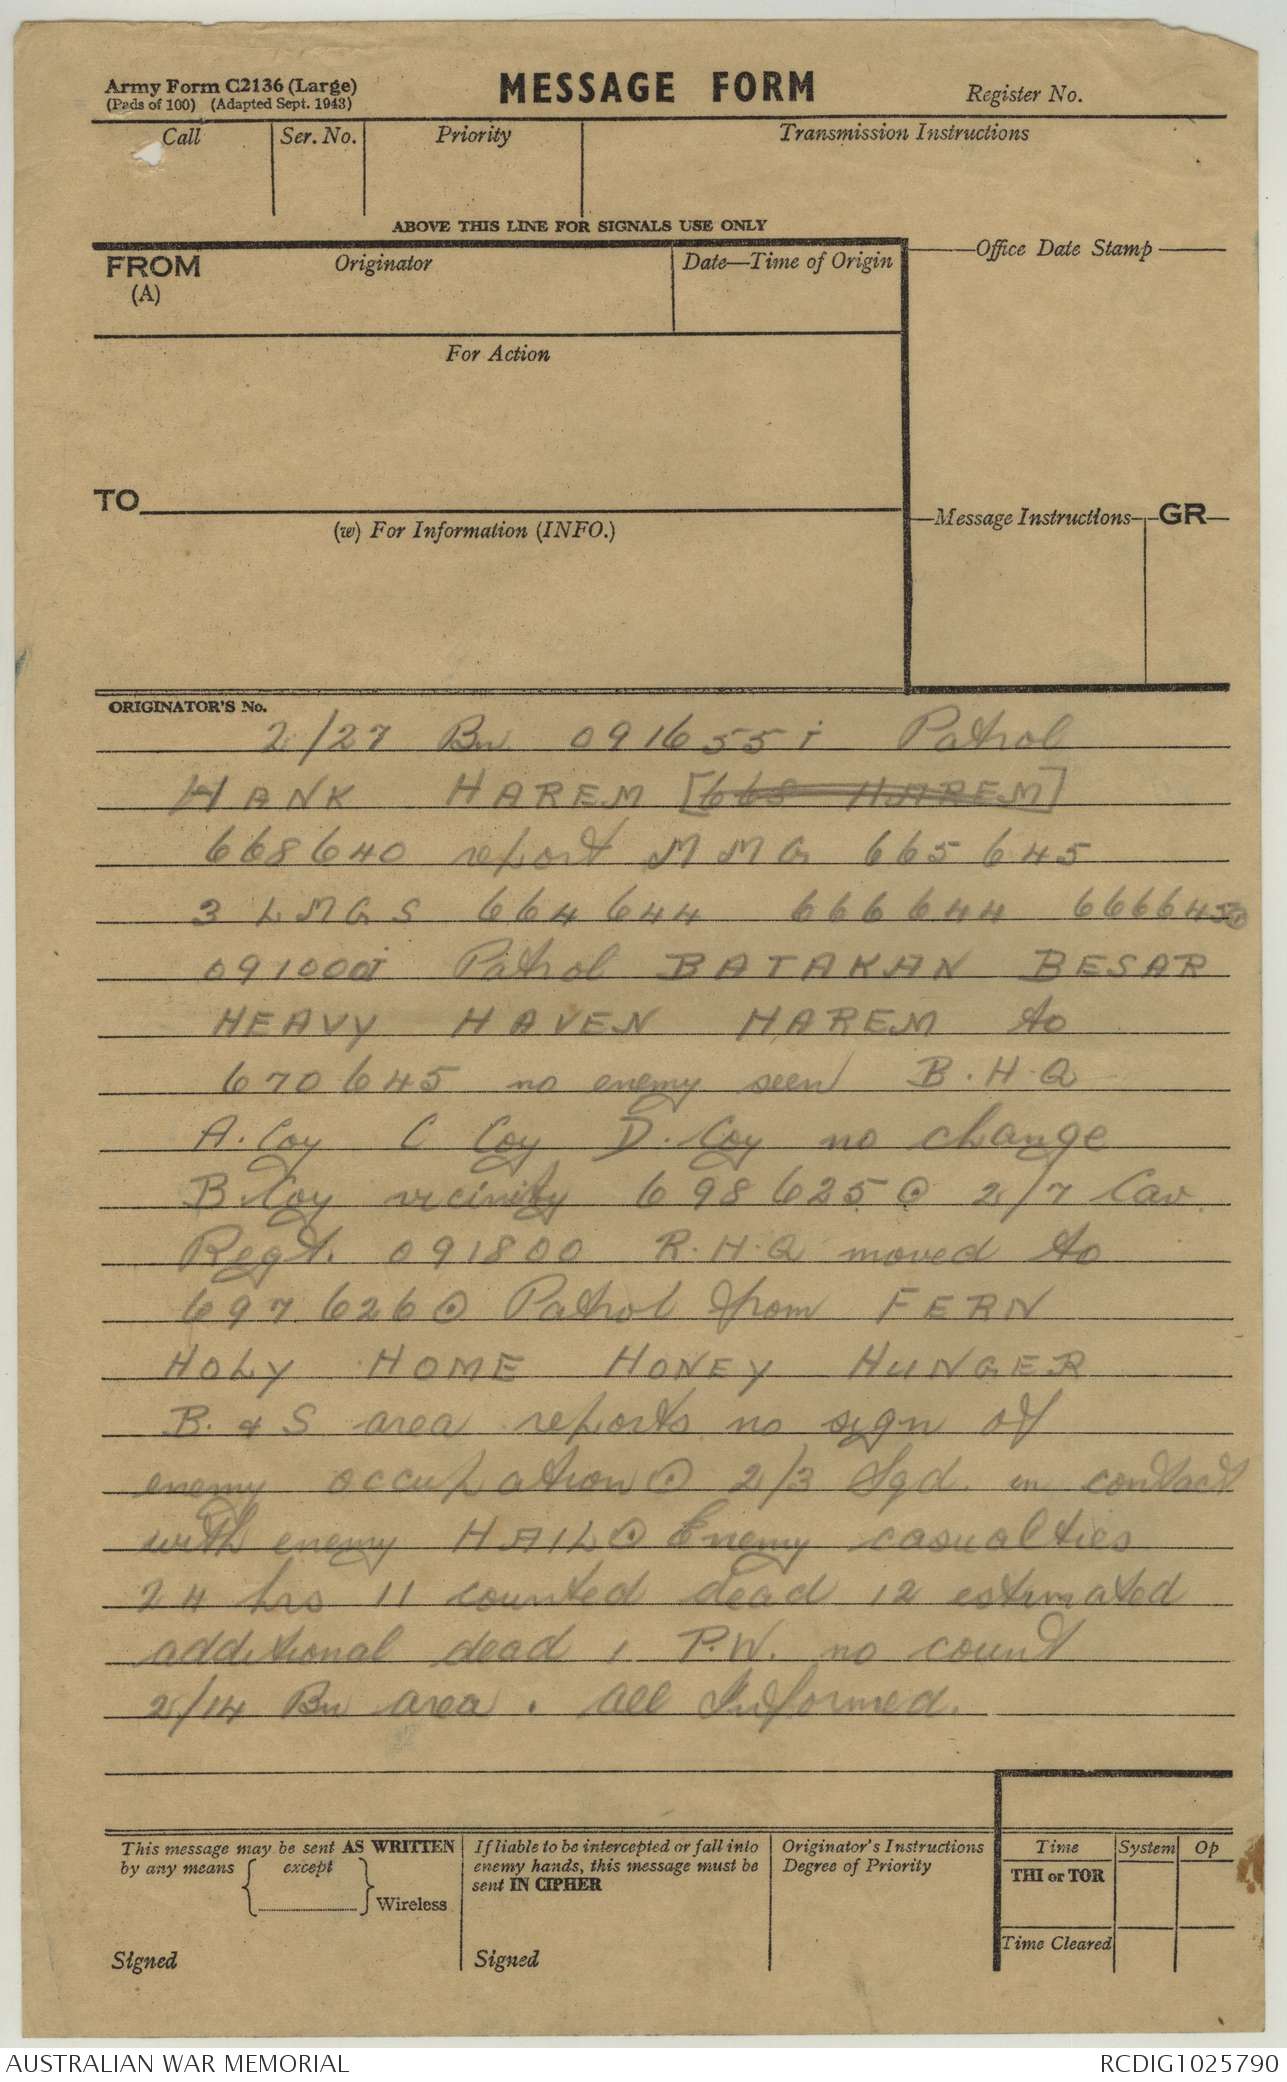 Army Form C2136 (Large)
(Pads of 100) (Adapted Sept. 1943)
MESSAGE FORM
Register No.
Call
Ser. No.
Priority
Transmission Instructions
ABOVE THIS LINE FOR SIGNALS USE ONLY
FROM
(A)
Originator
Date—Time of Origin
Office Date Stamp
For Action
TO
(w) For Information (INFO.)
Message Instructions
GR
ORIGINATOR'S No.
2/27 Bn 091655i Patrol
HANK HAREM [668 HAREM]
668640 report MMG 665645
3 LMGS 664644 666644 666645⊙
091000i Patrol BATAKAN BESAR
HEAVY HAVEN HAREM to
670645 no enemy seen B.H.Q
A. Coy C Coy D. Coy no change
B Coy vicinity 698625⊙ 2/7 Cav.
Regt. 091800 R.H.Q moved to
697626⊙ Patrol from FERN
HOLY HOME HONEY HUNGER
B. & S area reports no sign of
enemy occupation⊙ 2/3 Sqd. in contact
with enemy HAIL⊙ Enemy casualties
24 hrs 11 counted dead 12 estimated
additional dead 1 P.W. no count
2/14 Bn area. all Informed.
This message may be sent AS WRITTEN
by any means { except } Wireless
Signed
If liable to be intercepted or fall into
enemy hands, this message must be
sent IN CIPHER
Signed
Originator's Instructions
Degree of Priority
Time
System
Op
THI or TOR
Time Cleared
AUSTRALIAN WAR MEMORIAL
RCDIG1025790